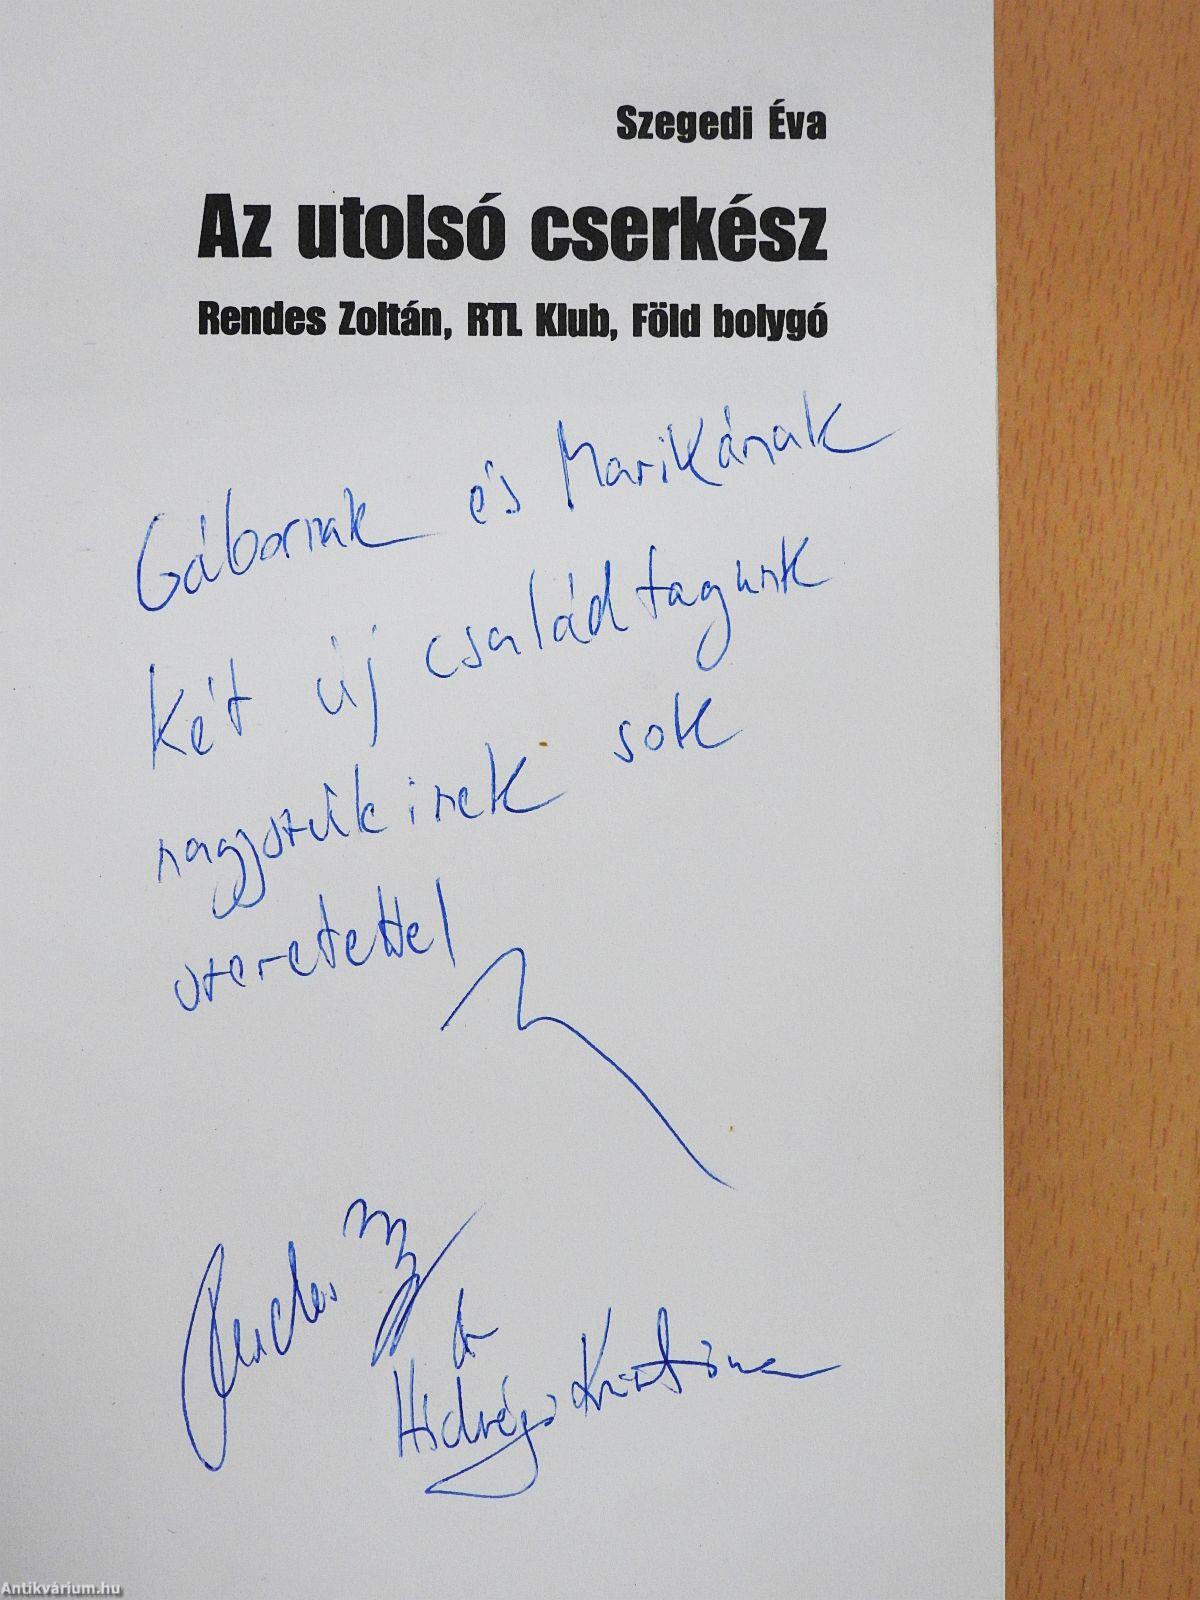 Szegedi Éva
Az utolsó cserkész
Rendes Zoltán, RTL Klub, Föld bolygó
Gábornak és Marikának
két új családtagunk
nagyszüleinek sok
szeretettel
Rendes
Hidvégi Krisztina
Antikvárium.hu